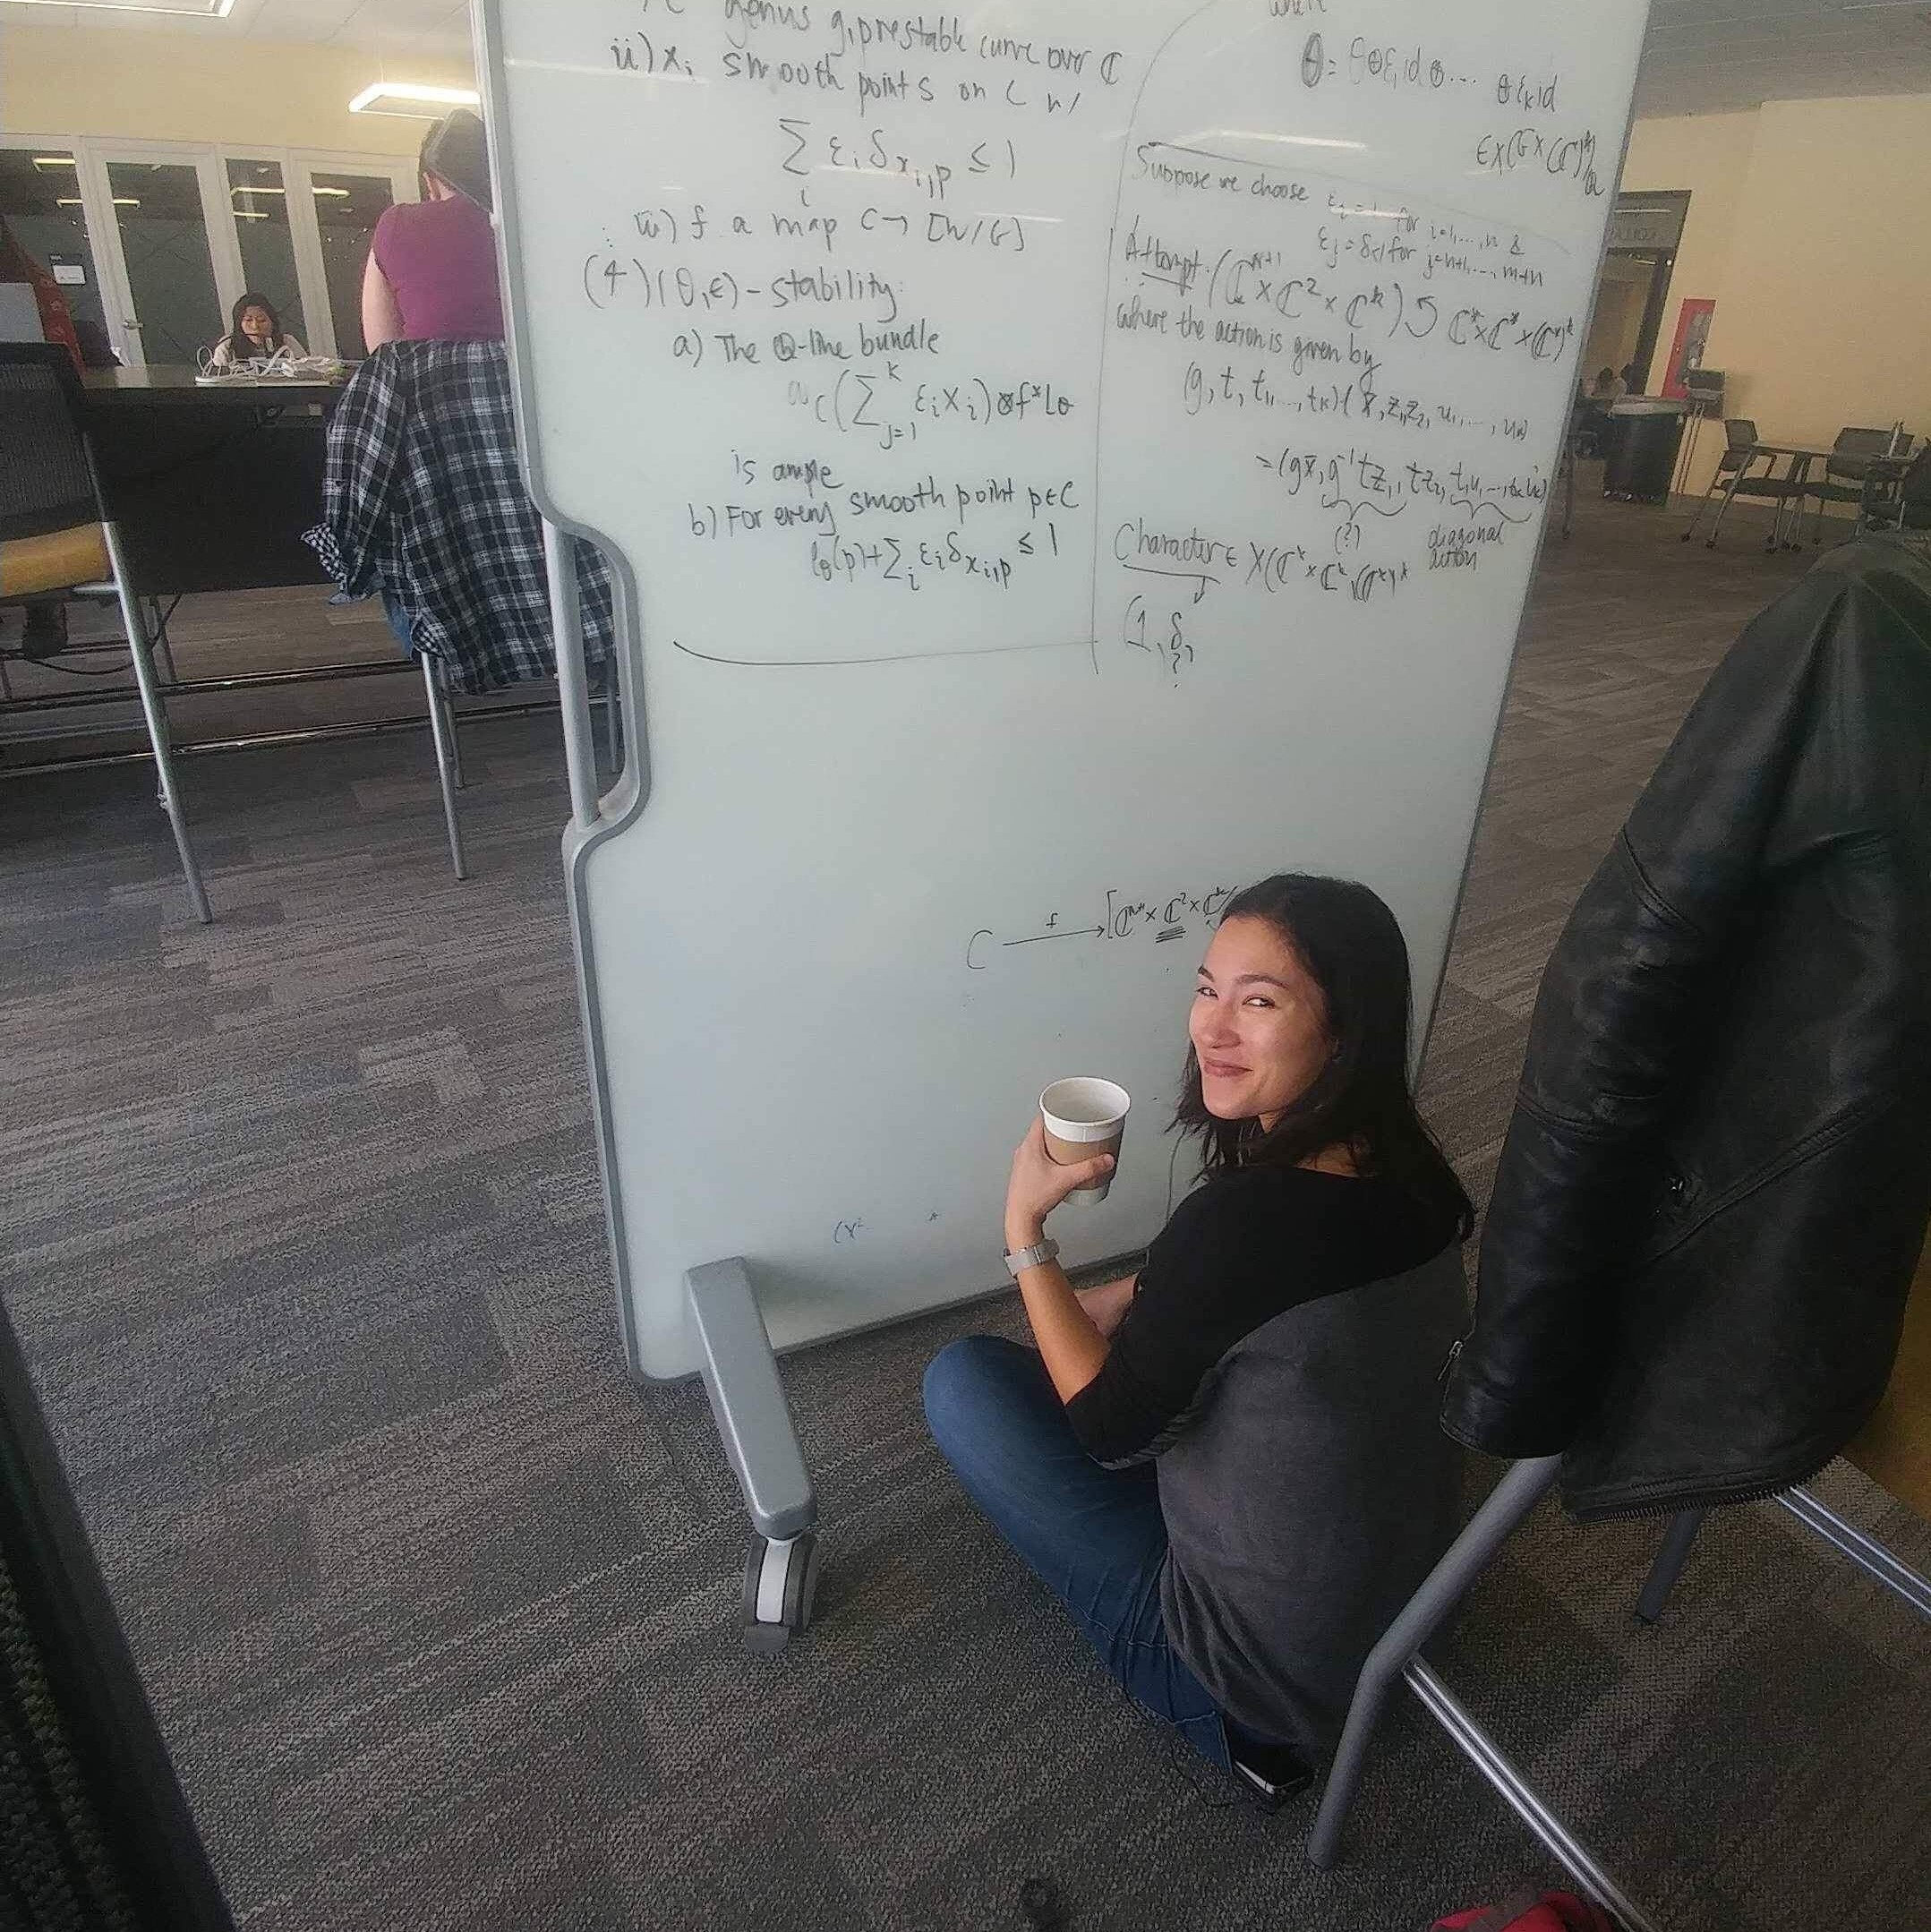 genus g, prestable curve over ℂ
ii) xᵢ smooth points on C w/
∑ᵢ εᵢ δ_{xᵢ,p} ≤ 1
iii) f a map C → [W/G]
(4) (θ,ε)-stability:
a) The ℚ-line bundle
ω_C(∑_{j=1}^k εᵢxᵢ) ⊗ f*Lθ
is ample
b) For every smooth point p∈C
ℓ_θ(p) + ∑ᵢ εᵢ δ_{xᵢ,p} ≤ 1
where
εₖ id
Suppose we choose εᵢ = 1 for i=1,...,n &
εⱼ = δ<1 for j=n+1,...,m+n
Attempt: (ℂⁿ⁺¹ × ℂ² × ℂᵏ) ↺ ℂ* × ℂ* × (ℂ*)ᵏ
where the action is given by
(g, t, t₁, ..., tₖ)(x̄, z₁, z₂, u₁, ..., uₖ)
= (gx̄, g⁻¹tz₁, tz₂, t₁u₁, ..., tₖuₖ)
(?) diagonal
action
Character ∈ X(ℂ* × ℂ* × (ℂ*)ᵏ
(1, δ,
?
C f → [ℂⁿ⁺¹ × ℂ² × ℂᵏ